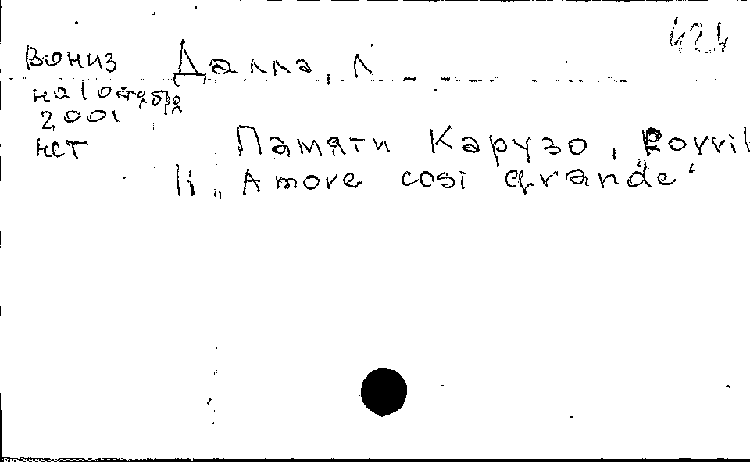 424
Вониз Далла, Л
на 1 октября
2001
нет Памяти Карузо, Borril
li „Amore cosi grande"